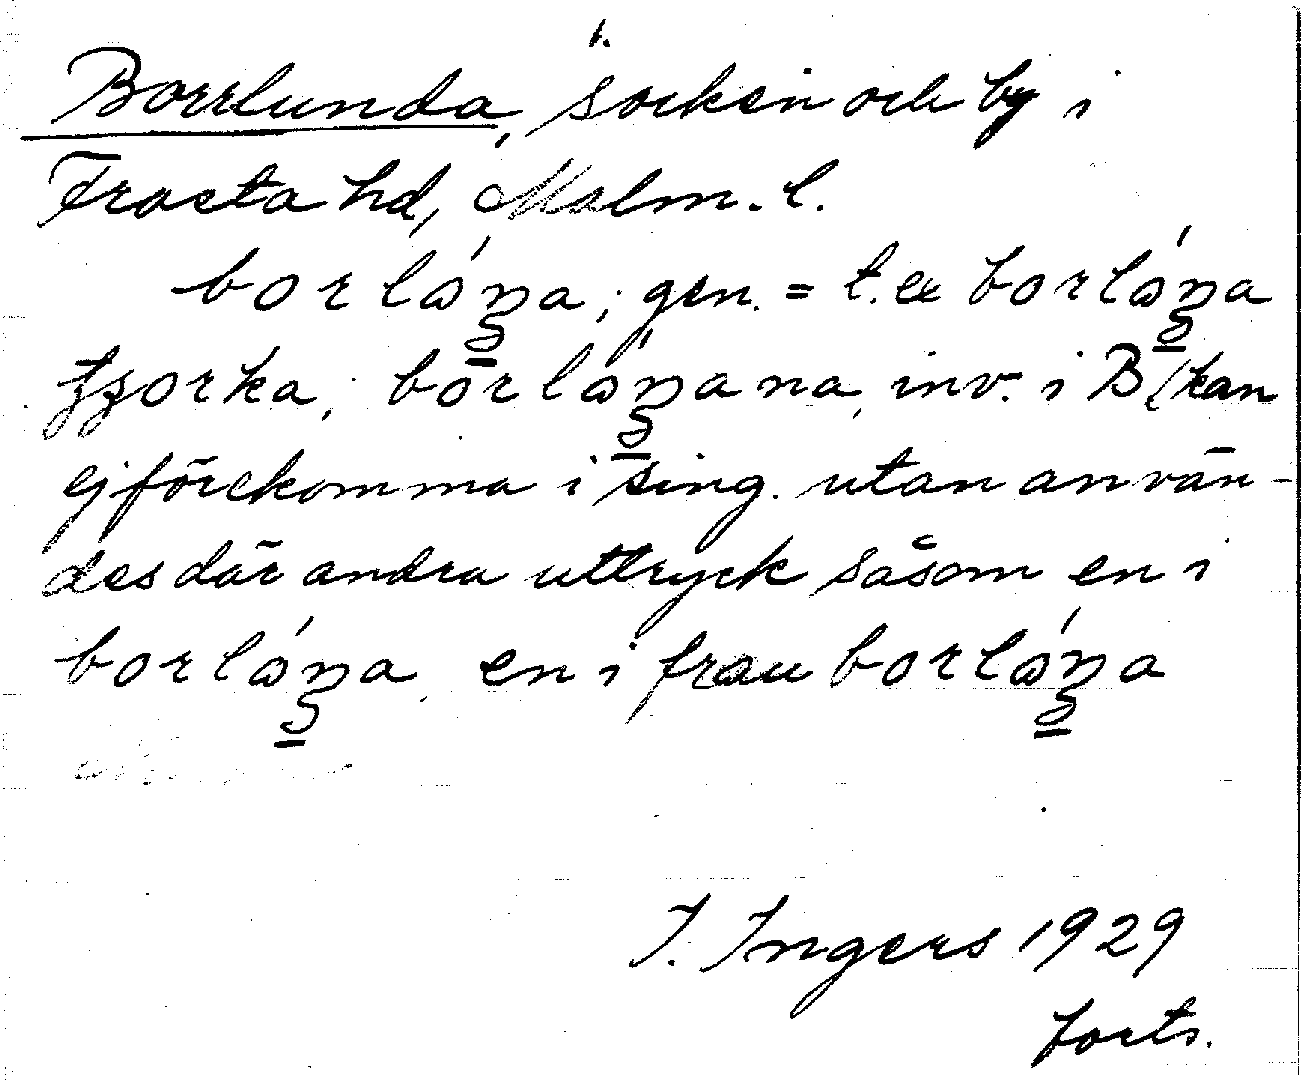 1.
Borrlunda, socken och by i
Frosta hd, Malm. l.
borlóŋa; gen. = t. ex borlóŋa
borlóŋana, inv. i B (kan
ej förekomma i sing. utan använ-
des där andra uttryck såsom en i
borlóŋa, en i frau borlóŋa
I. Ingers 1929
forts.